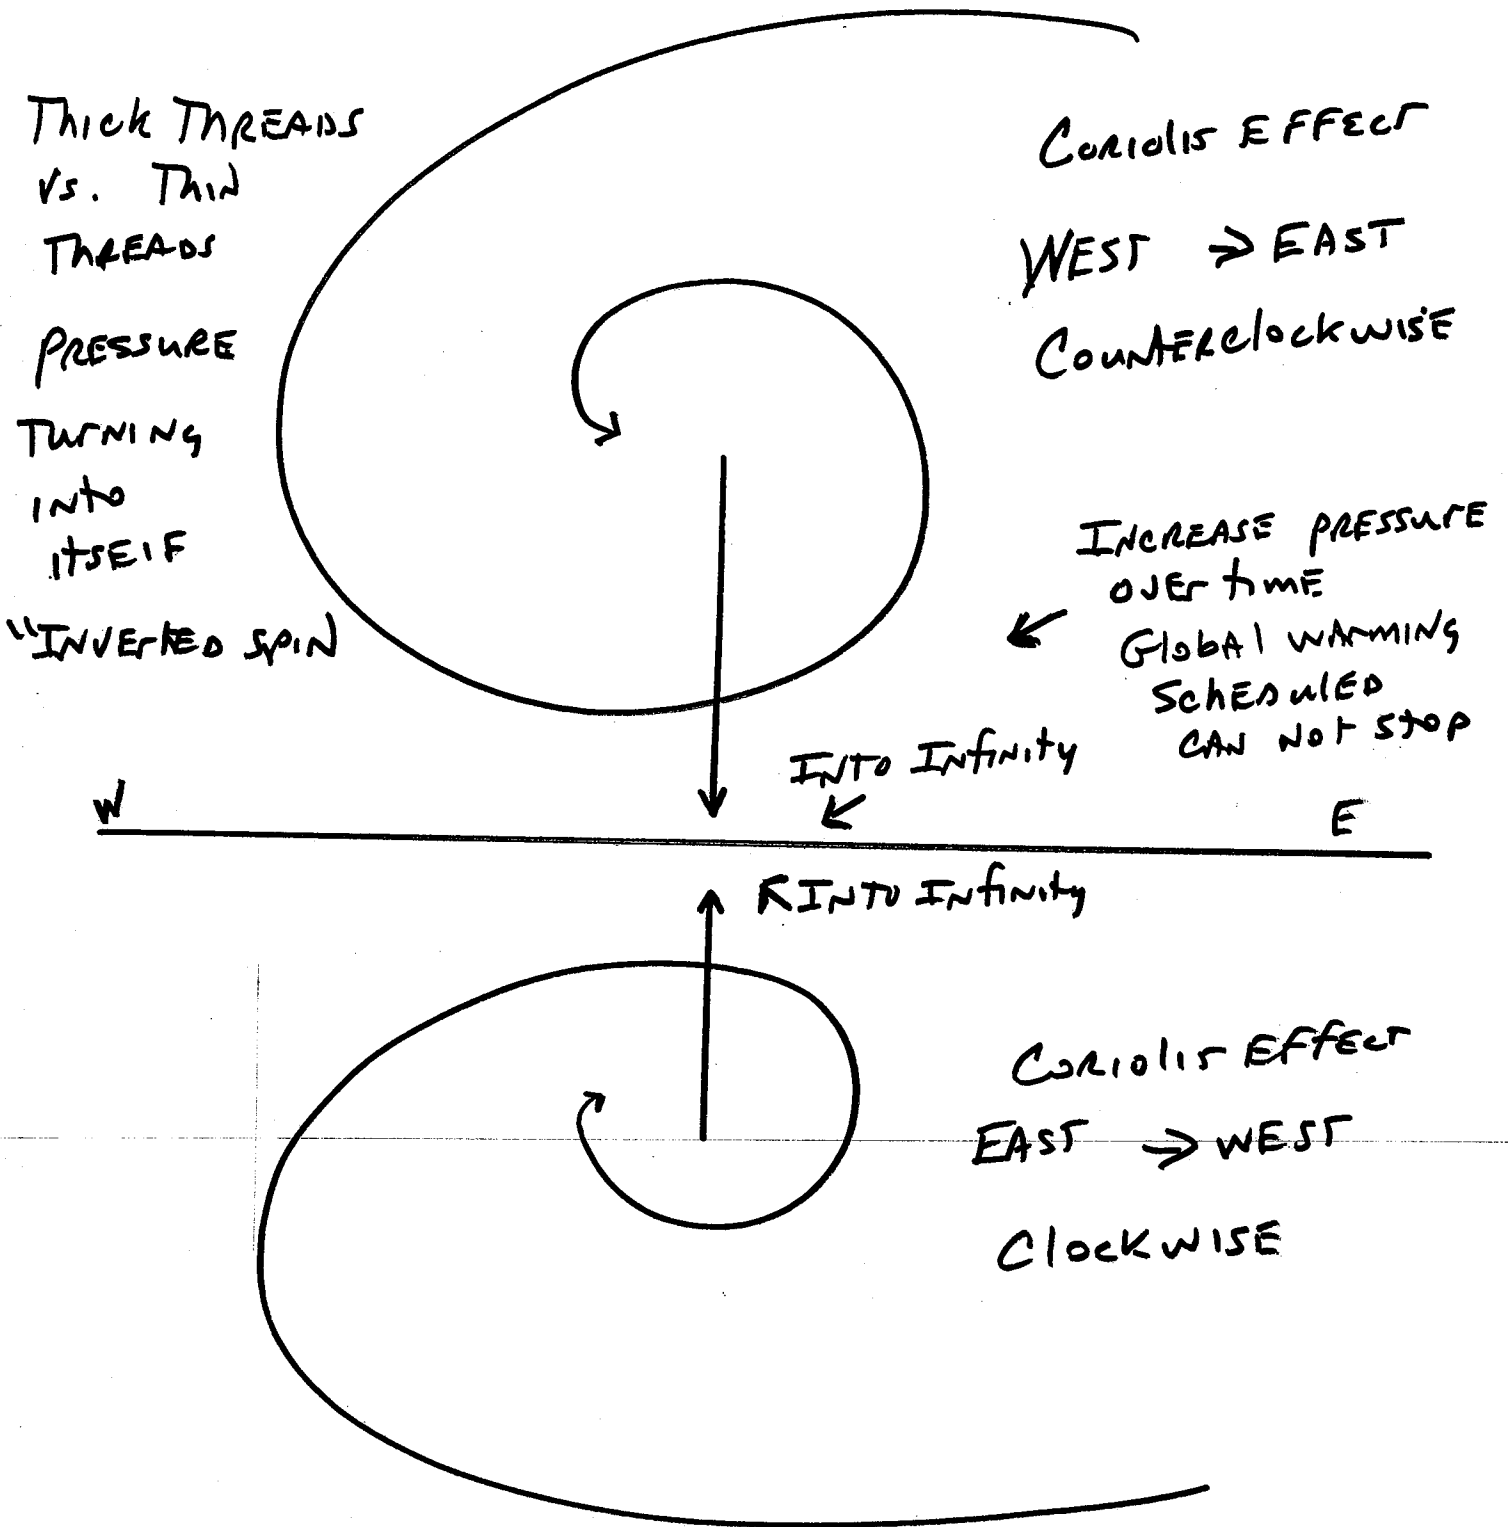 Thick Threads
vs. Thin
Threads
Pressure
Turning
into
itself
"Inverted Spin
Coriolis Effect
West → East
Counterclockwise
Increase pressure
over time
Global warming
Scheduled
can not stop
Into Infinity
W
E
Into Infinity
Coriolis Effect
East → West
Clockwise